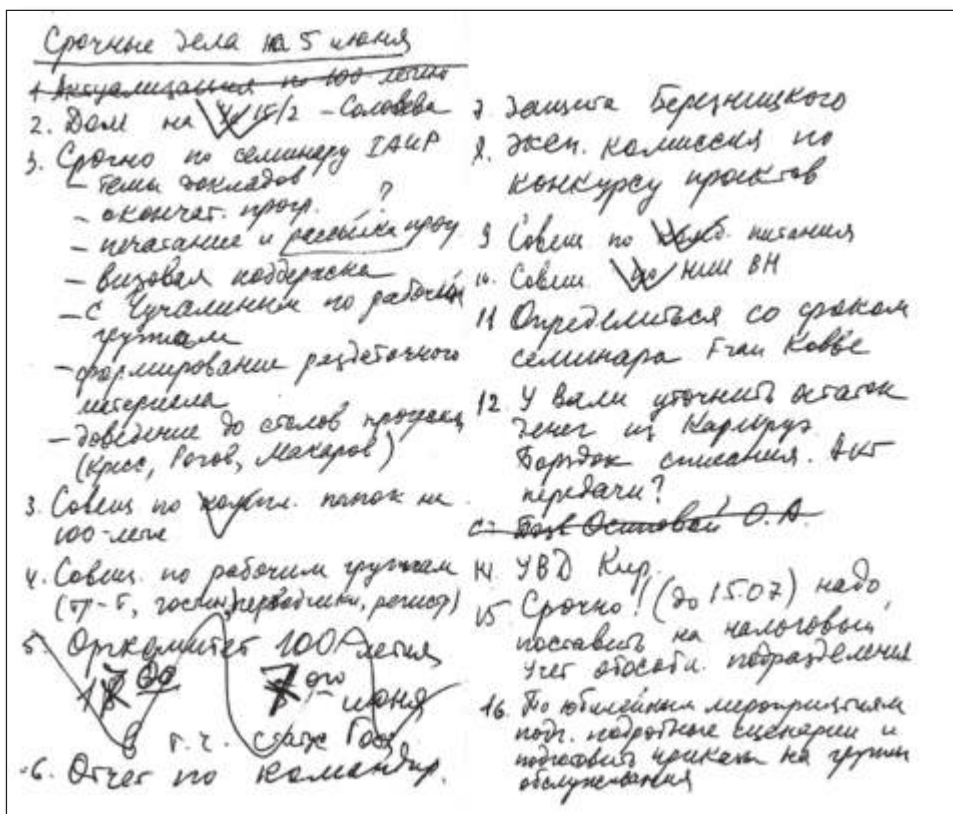 Срочные дела на 5 июня
1. Актуализация по 100-летию
2. Дом на 15/2 – Соловьева
3. Срочно по семинару IAUP
– темы докладов
– окончат. прогр. ?
– печатание и рассылка прогр
– визовая поддержка
– с Чучалиным по рабочим
группам
– формирование раздаточного
материала
– доведение до столов
(Кресс, Рогов, Макаров)
3. Совещ по компл. папок на
100-лет
4. Совещ. по рабочим группам
(тр-т, гостин, переводчики, регистр)
5. Оргкомитет 100-летия
00 7го июня
в т.ч.
6. Отчет по командир.
7. Защита Березницкого
8. Эксп. комиссия по
конкурсу проектов
9 Совещ по питания
10. Совещ. НИИ ВН
11 Определиться со сроком
семинара Frau
12. У Вали уточнить остаток
денег из Карлсруэ
Порядок списания. Акт
передачи?
Осиповой О.А.
14. УВД Кир.
15 Срочно! (до 15.07) надо
поставить на налоговый
учет обособл. подразделения
16. По юбилейным мероприятиям
подг. подробные сценарии и
подготовить приказы на группы
обслуживания